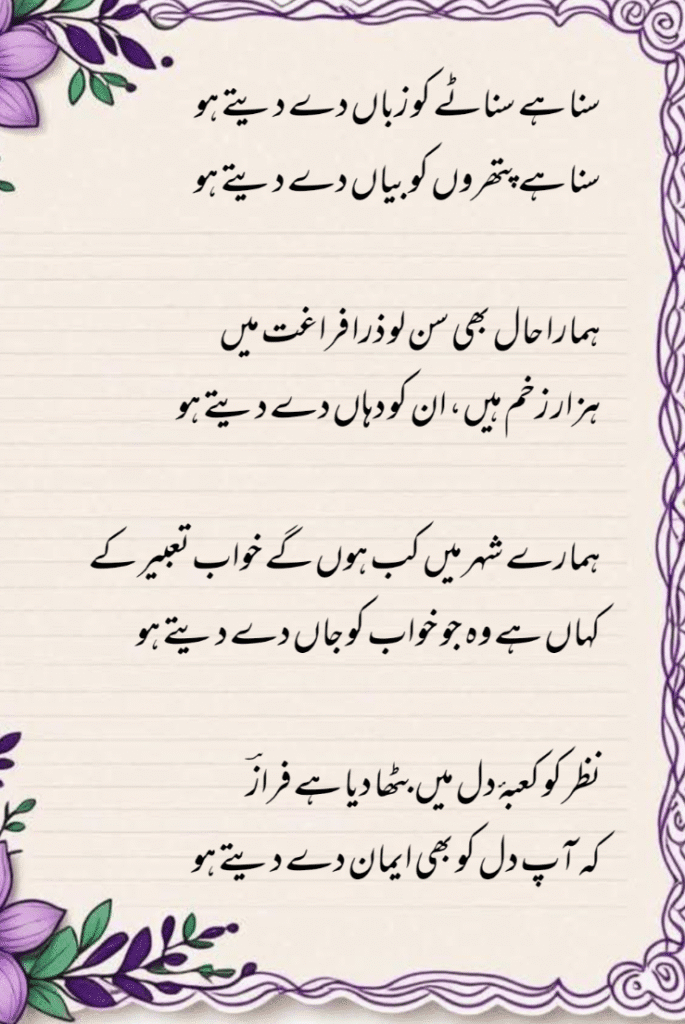 سنا ہے سناٹے کو زباں دے دیتے ہو
سنا ہے پتھروں کو بیاں دے دیتے ہو
ہمارا حال بھی سن لو ذرا فراغت میں
ہزار زخم ہیں، ان کو دہاں دے دیتے ہو
ہمارے شہر میں کب ہوں گے خواب تعبیر کے
کہاں ہے وہ جو خواب کو جاں دے دیتے ہو
نظر کو کعبۂ دل میں بٹھا دیا ہے فرازؔ
کہ آپ دل کو بھی ایمان دے دیتے ہو